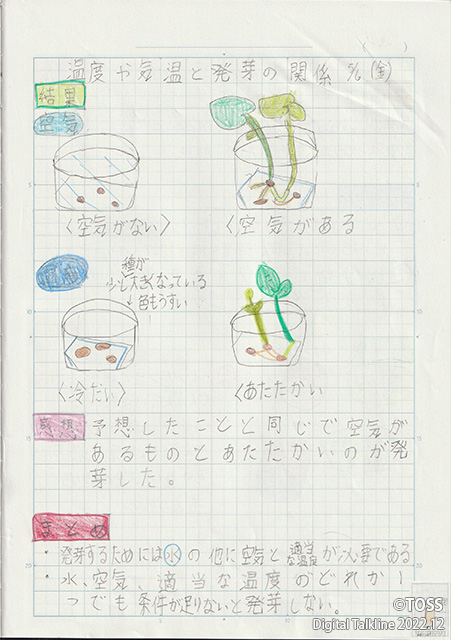 温度や空気と発芽の関係 %(金)
結果
空気
〈空気がない〉
〈空気がある
温度
種が
少し大きくなっている
色もうすい
〈冷たい〉
〈あたたかい
感想
予想したことと同じで空気が
あるものとあたたかいのが発
芽した。
まとめ
・発芽するためには水の他に空気と適当な温度が必要である
・水、空気、適当な温度のどれか1
つでも条件が足りないと発芽しない。
©TOSS
Digital Talkline 2022.12